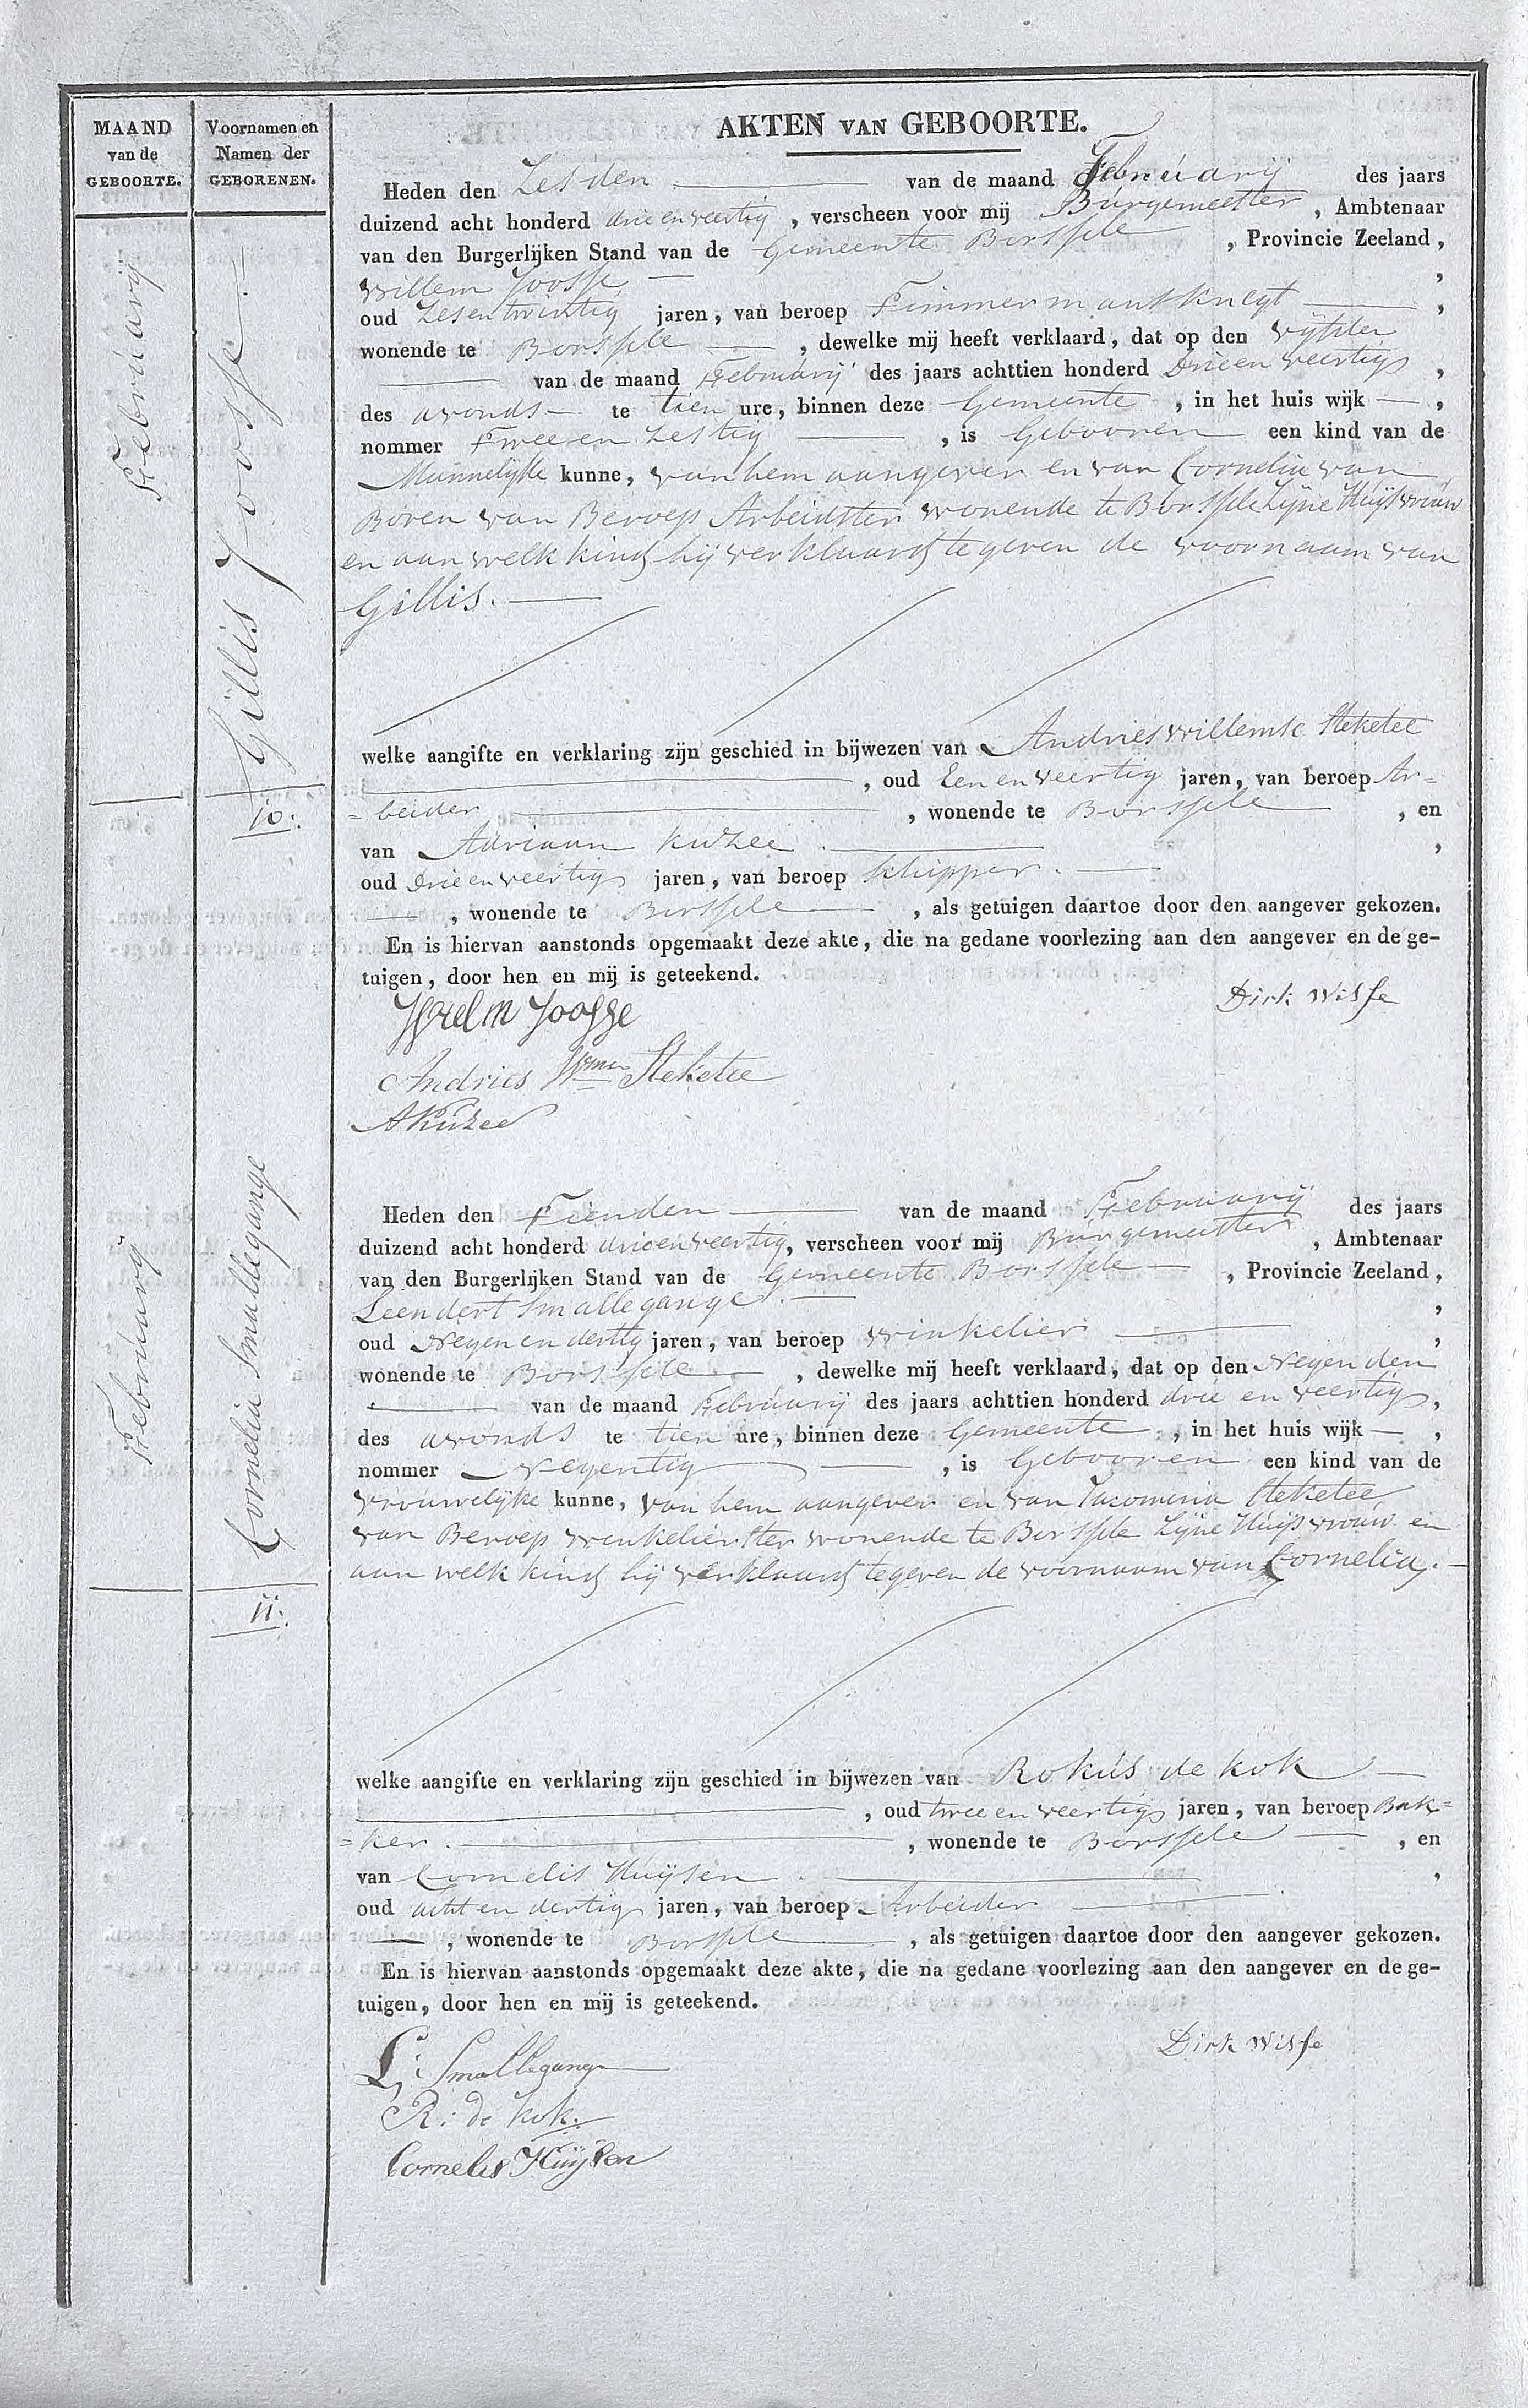 MAAND
van de
GEBOORTE.
Voornamen en
Namen der
GEBORENEN.
AKTEN VAN GEBOORTE.
Februarij
Gillis Joosse
10:
Heden den Zesden van de maand Februarij des jaars
duizend acht honderd drie en veertig, verscheen voor mij Burgemeester, Ambtenaar
van den Burgerlijken Stand van de Gemeente Borssele, Provincie Zeeland,
Willem Joosse,
oud Zesentwintig jaren, van beroep Timmermansknegt,
wonende te Borssele, dewelke mij heeft verklaard, dat op den vijfden
van de maand Februarij des jaars achttien honderd Drie en veertig,
des avonds te tien ure, binnen deze Gemeente, in het huis wijk —,
nommer Twee en Zestig, is Gebooren een kind van de
Mannelijke kunne, van hem aangever en van Cornelia van
Boven van Beroep Arbeidster wonende te Borssele Zijne Huijsvrouw
en aan welk kind hij verklaard te geven de voornaam van
Gillis.
welke aangifte en verklaring zijn geschied in bijwezen van Andries Willemse Steketee
, oud Een en veertig jaren, van beroep Ar=
=beider, wonende te Borssele, en
van Adriaan Kuzee,
oud Drie en veertig jaren, van beroep Schipper.
, wonende te Borssele, als getuigen daartoe door den aangever gekozen.
En is hiervan aanstonds opgemaakt deze akte, die na gedane voorlezing aan den aangever en de ge-
tuigen, door hen en mij is geteekend.
Dirk Wisse
Willem Joosse
Andries Wmse Steketee
A Kuzee
Februarij
Cornelia Smallegange
11:
Heden den Tienden van de maand Februarij des jaars
duizend acht honderd drie en veertig, verscheen voor mij Burgemeester, Ambtenaar
van den Burgerlijken Stand van de Gemeente Borssele, Provincie Zeeland,
Leendert Smallegange.,
oud Negen en dertig jaren, van beroep Winkelier,
wonende te Borssele, dewelke mij heeft verklaard, dat op den Negenden
van de maand Februarij des jaars achttien honderd drie en veertig,
des avonds te tien ure, binnen deze Gemeente, in het huis wijk —,
nommer Negentig, is Gebooren een kind van de
vrouwelijke kunne, van hem aangever en van Jacomina Steketee
van Beroep winkelierster wonende te Borssele Zijne Huijsvrouw en
aan welk kind hij verklaard te geven de voornaam van Cornelia.
welke aangifte en verklaring zijn geschied in bijwezen van Rokus de Kok
, oud twee en veertig jaren, van beroep Bak=
=ker., wonende te Borssele, en
van Cornelis Huijsen.,
oud acht en dertig jaren, van beroep Arbeider
, wonende te Borssele, als getuigen daartoe door den aangever gekozen.
En is hiervan aanstonds opgemaakt deze akte, die na gedane voorlezing aan den aangever en de ge-
tuigen, door hen en mij is geteekend.
Dirk Wisse
L: Smallegange
R: de Kok.
Cornelis Huijsen